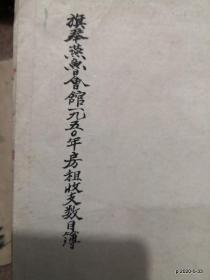 旗奉燕魯會館一九五〇年房租收支数目簿
p-2020-5-03